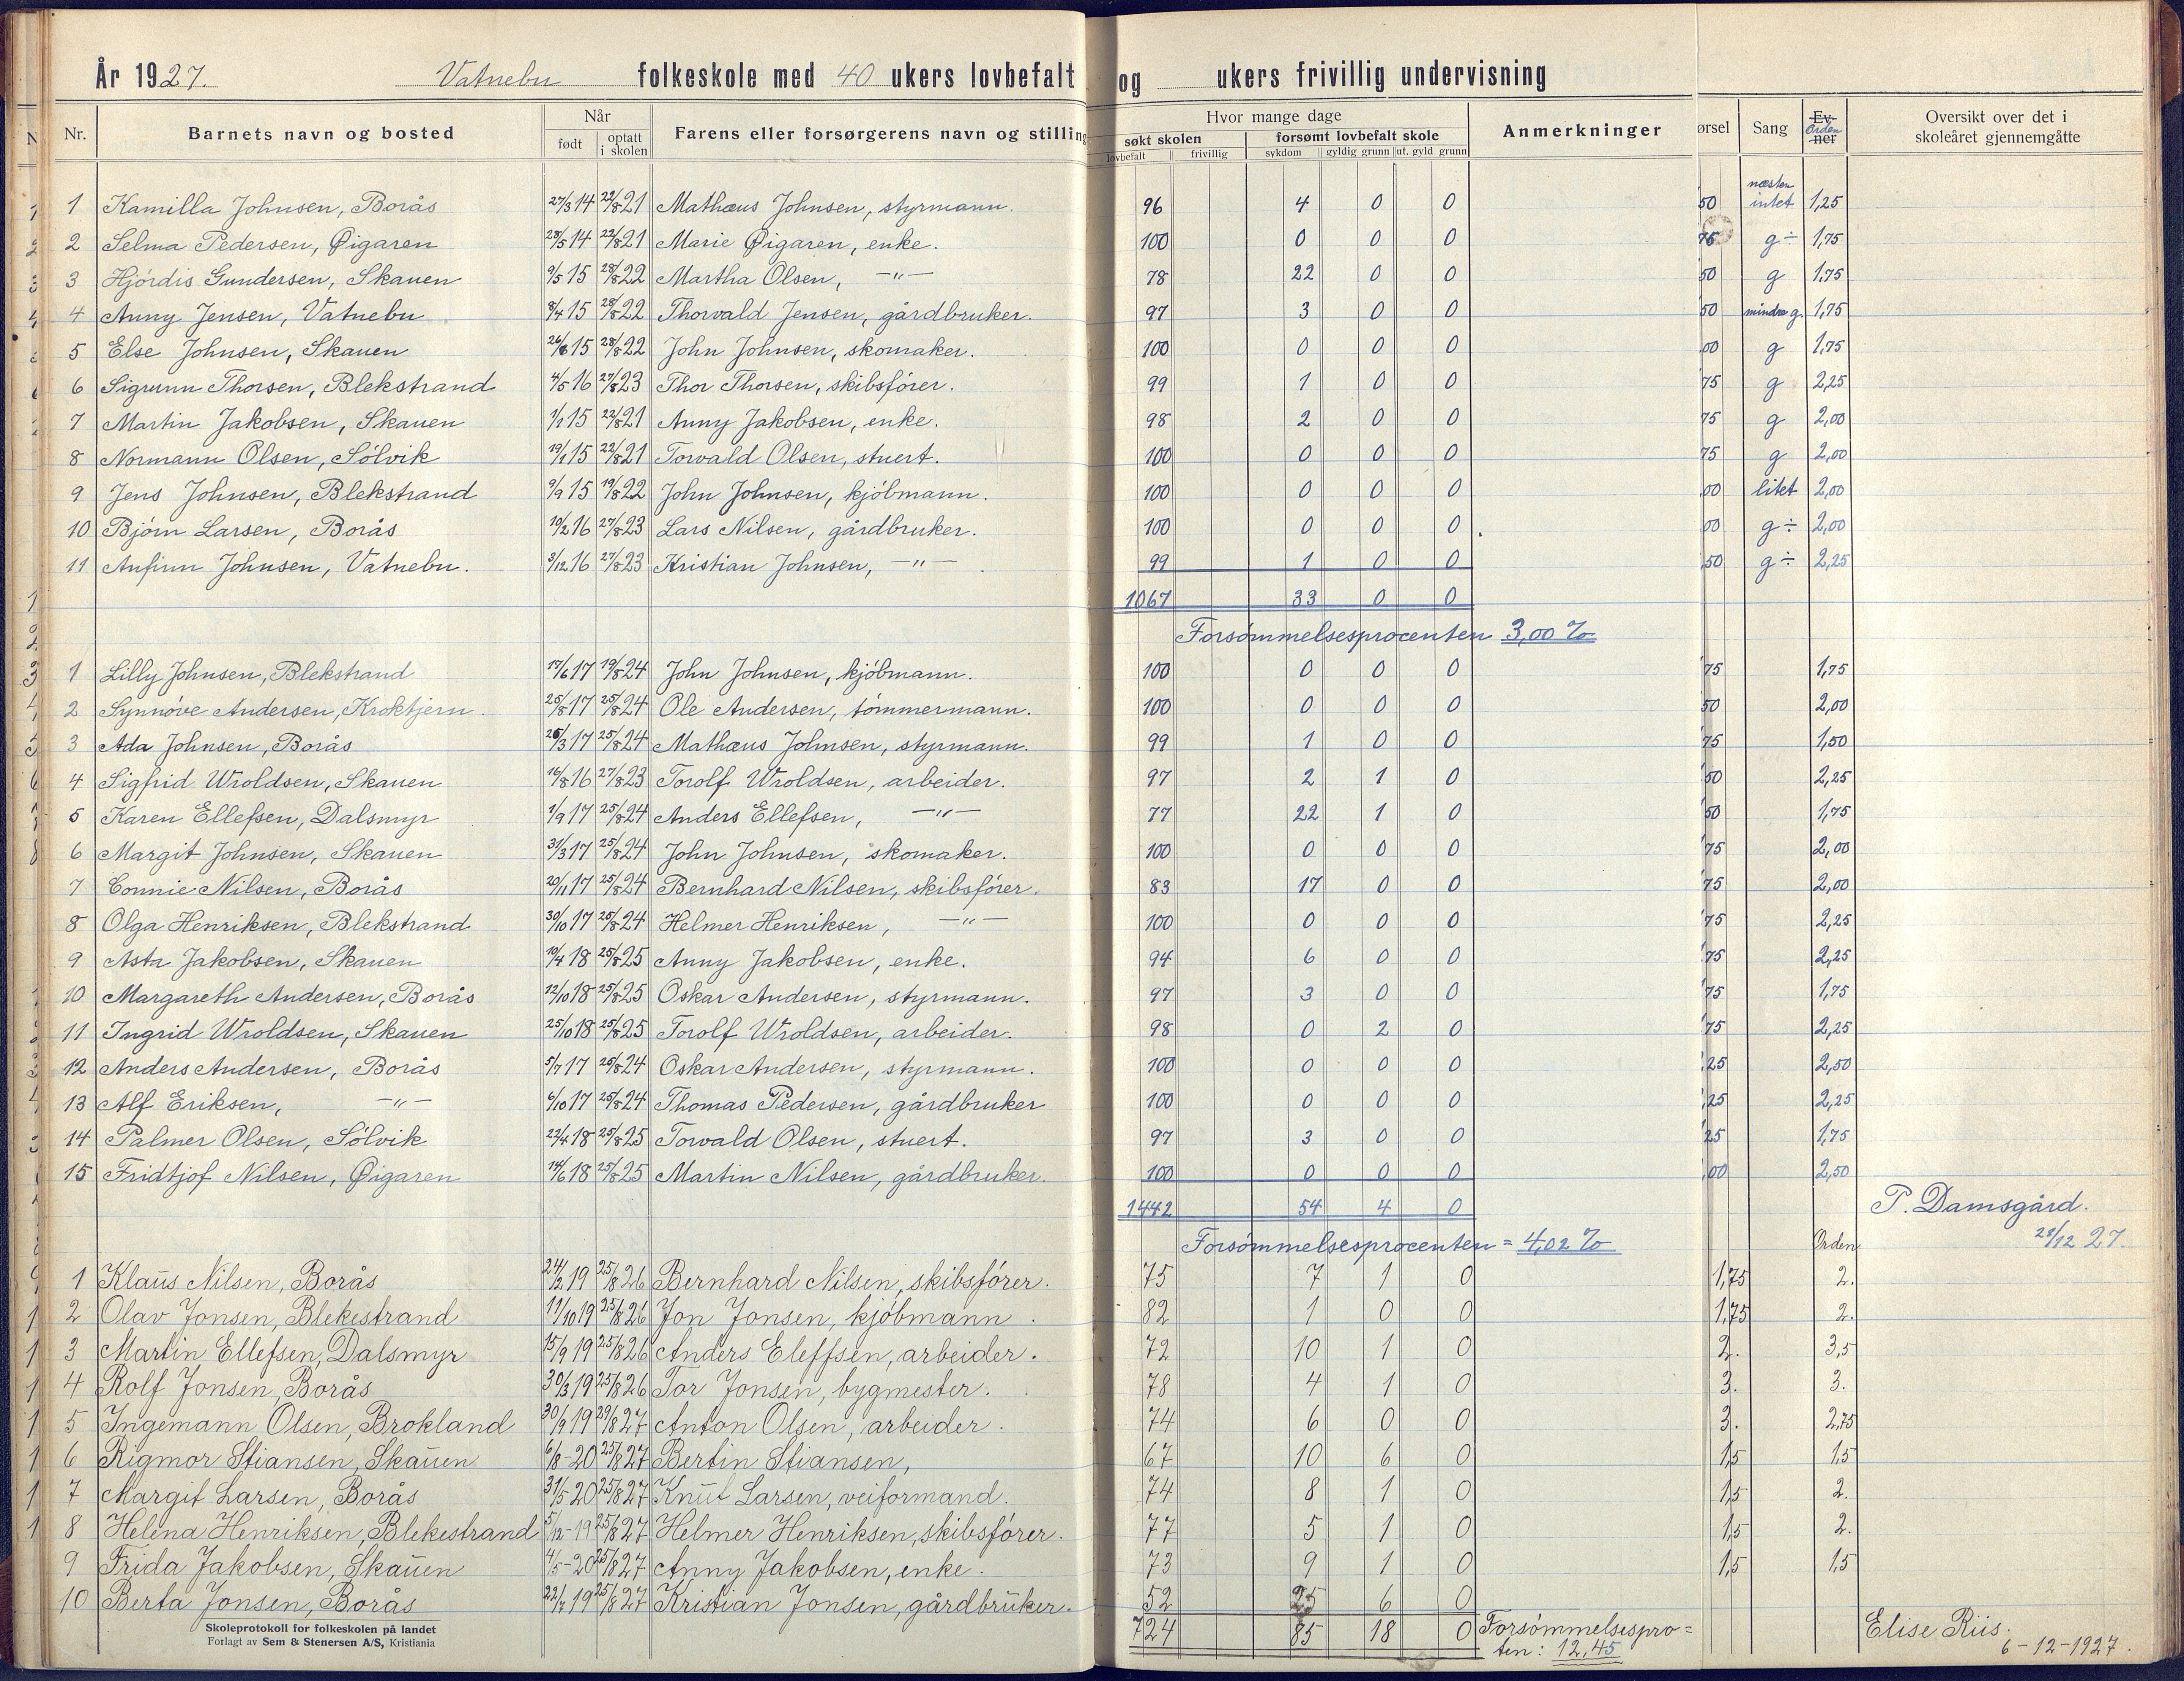 År 1927. Vatnebu folkeskole med 40 ukers lovbefalt og ukers frivillig undervisning
Nr. Barnets navn og bosted Når født optatt i skolen Farens eller forsørgerens navn og stilling Hvor mange dage søkt skolen lovbefalt frivillig forsømt lovbefalt skole sykdom gyldig grunn ut. gyld grunn Anmerkninger ørsel Sang Ev-ner Orden Oversikt over det i skoleåret gjennemgåtte
1 Kamilla Johnsen, Borås 27/3 14 22/8 21 Mathæus Johnsen, styrmann. 96 4 0 0 50 næsten intet 1,25
2 Selma Pedersen, Øigaren 28/5 14 22/8 21 Marie Øigaren, enke. 100 0 0 0 75 g ÷ 1,75
3 Hjördis Gundersen, Skauen 9/5 15 28/8 22 Martha Olsen, —"— 78 22 0 0 50 g 1,75
4 Anny Jensen, Vatnebu 8/4 15 28/8 22 Thorvald Jensen, gårdbruker. 97 3 0 0 50 mindre g. 1,75
5 Else Johnsen, Skauen 26/6 15 28/8 22 John Johnsen, skomaker. 100 0 0 0 00 g 1,75
6 Sigrunn Thorsen, Blekstrand 4/5 16 27/8 23 Thor Thorsen, skibsförer. 99 1 0 0 75 g 2,25
7 Martin Jakobsen, Skauen 1/1 15 22/8 21 Anny Jakobsen, enke. 98 2 0 0 75 g 2,00
8 Normann Olsen, Sölvik 19/1 15 22/8 21 Torvald Olsen, stuert. 100 0 0 0 75 g 2,00
9 Jens Johnsen, Blekstrand 9/9 15 19/8 22 John Johnsen, kjöbmann. 100 0 0 0 00 litet 2,00
10 Björn Larsen, Borås 10/2 16 27/8 23 Lars Nilsen, gårdbruker. 100 0 0 0 00 g ÷ 2,00
11 Anfinn Johnsen, Vatnebu. 3/12 16 27/8 23 Kristian Johnsen, —"— 99 1 0 0 50 g ÷ 2,25
1067 33 0 0
Forsömmelsesprocenten 3,00 %
1 Lilly Johnsen, Blekstrand 17/6 17 19/8 24 John Johnsen, kjöbmann. 100 0 0 0 75 1,75
2 Synnöve Andersen, Kroktjern. 25/8 17 25/8 24 Ole Andersen, tömmermann. 100 0 0 0 50 2,00
3 Ada Johnsen, Borås 26/3 17 25/8 24 Mathæus Johnsen, styrmann. 99 1 0 0 75 1,50
4 Sigfrid Wroldsen, Skauen 16/8 16 27/8 23 Torolf Wroldsen, arbeider. 97 2 1 0 50 2,25
5 Karen Ellefsen, Dalsmyr 1/9 17 25/8 24 Anders Ellefsen, —"— 77 22 1 0 50 1,75
6 Margit Johnsen, Skauen 31/3 17 25/8 24 John Johnsen, skomaker. 100 0 0 0 75 2,00
7 Connie Nilsen, Borås 20/11 17 25/8 24 Bernhard Nilsen, skibsförer. 83 17 0 0 75 2,00
8 Olga Henriksen, Blekstrand 30/10 17 25/8 24 Helmer Henriksen, —"— 100 0 0 0 75 2,25
9 Asta Jakobsen, Skauen 10/4 18 25/8 25 Anny Jakobsen, enke. 94 6 0 0 75 2,25
10 Margareth Andersen, Borås 12/10 18 25/8 25 Oskar Andersen, styrmann. 97 3 0 0 75 1,75
11 Ingrid Wroldsen, Skauen 25/10 18 25/8 25 Torolf Wroldsen, arbeider. 98 0 2 0 75 2,25
12 Anders Andersen, Borås 5/7 17 25/8 24 Oskar Andersen, styrmann. 100 0 0 0 ,25 2,50
13 Alf Eriksen, —"— 6/10 17 25/8 24 Thomas Pedersen, gårdbruker 100 0 0 0 ,25 2,25
14 Palmer Olsen, Sölvik 22/4 18 25/8 25 Torvald Olsen, stuert. 97 3 0 0 25 1,75
15 Fridtjof Nilsen, Øigaren 14/6 18 25/8 25 Martin Nilsen, gårdbruker. 100 0 0 0 ,00 2,50
1442 54 4 0 P. Damsgård.
Forsömmelsesprocenten = 4,02 % Orden 21/12 27.
1 Klaus Nilsen, Borås 24/2 19 25/8 26 Bernhard Nilsen, skibsförer. 75 7 1 0 1,75 2.
2 Olav Jonsen, Blekestrand 11/10 19 25/8 26 Jon Jonsen, kjöbmann. 82 1 0 0 1,75 2.
3 Martin Ellefsen, Dalsmyr 15/9 19 25/8 26 Anders Eleffsen, arbeider. 72 10 1 0 2. 3,5
4 Rolf Jonsen, Borås 30/3 19 25/8 26 Tor Jonsen, bygmester. 78 4 1 0 3. 3.
5 Ingemann Olsen, Brokland 30/9 19 29/8 27 Anton Olsen, arbeider. 74 6 0 0 3. 2,75
6 Rigmor Stiansen, Skauen 6/8-20 25/8 27 Bertin Stiansen, 67 10 6 0 1,5 1,5
7 Margit Larsen, Borås 31/5 20 25/8 27 Knut Larsen, veiformand. 74 8 1 0 1,5 2.
8 Helena Henriksen, Blekestrand 5/12-19 25/8 27 Helmer Henriksen, skibsförer. 77 5 1 0 1,5 2.
9 Frida Jakobsen, Skauen 4/5-20 25/8 27 Anny Jakobsen, enke. 73 9 1 0 1,5 1,5
10 Berta Jonsen, Borås 22/7 19 25/8 27 Kristian Jonsen, gårdbruker. 52 25 6 0
724 85 18 0 Forsömmelsespro= Elise Riis.
ten: 12,45 6-12-1927.
Skoleprotokoll for folkeskolen på landet
Forlagt av Sem & Stenersen A/S, Kristiania